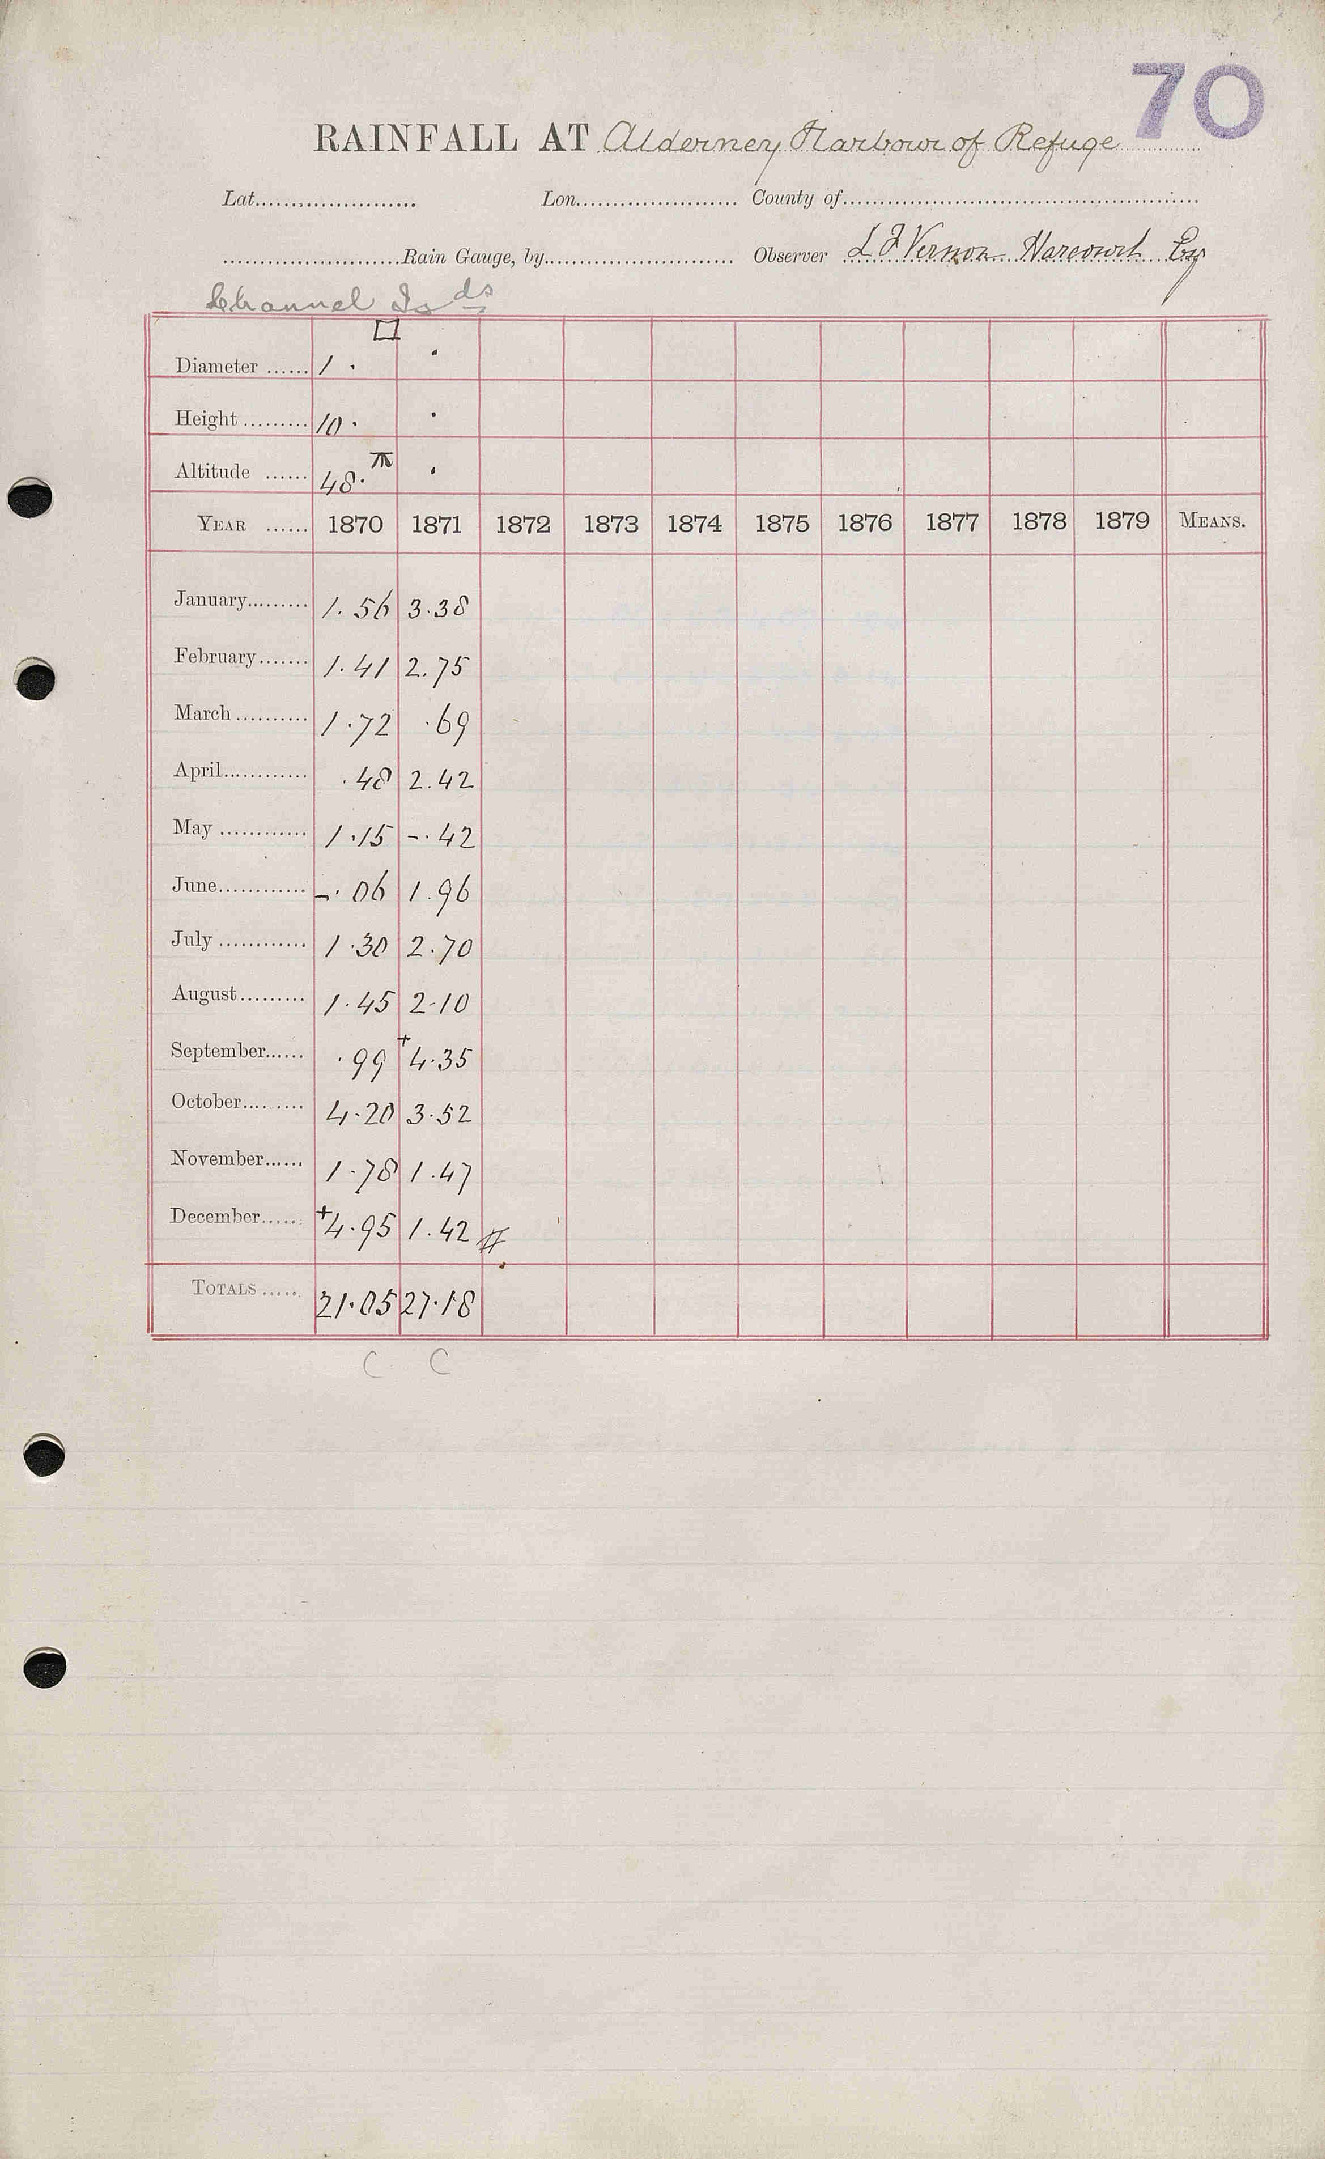 70
RAINFALL AT Alderney Harbour of Refuge
Lat...................... Lon...................... County of......................
......................Rain Gauge, by...................... Observer L F Vernon Harcourt Esq
Channel Isds
Diameter ...... 1 . □ .
Height ......... 10 . .
Altitude ...... 48 . .
YEAR ...... 1870 1871 1872 1873 1874 1875 1876 1877 1878 1879 MEANS.
January......... 1.56 3.38
February....... 1.41 2.75
March .......... 1.72 .69
April............ .48 2.42
May ............ 1.15 -.42
June............ -.06 1.96
July ............ 1.30 2.70
August......... 1.45 2.10
September...... .99 +4.35
October......... 4.20 3.52
November...... 1.78 1.47
December...... +4.95 1.42 #
TOTALS ...... 21.05 27.18
C C